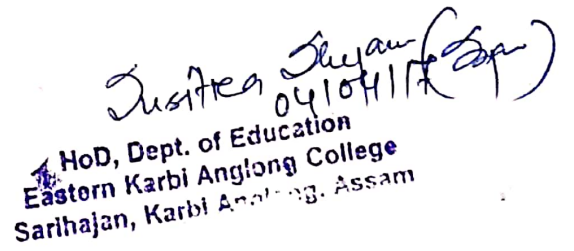 04/04/17
HoD, Dept. of Education
Eastern Karbi Anglong College
Sarihajan, Karbi Anglong. Assam